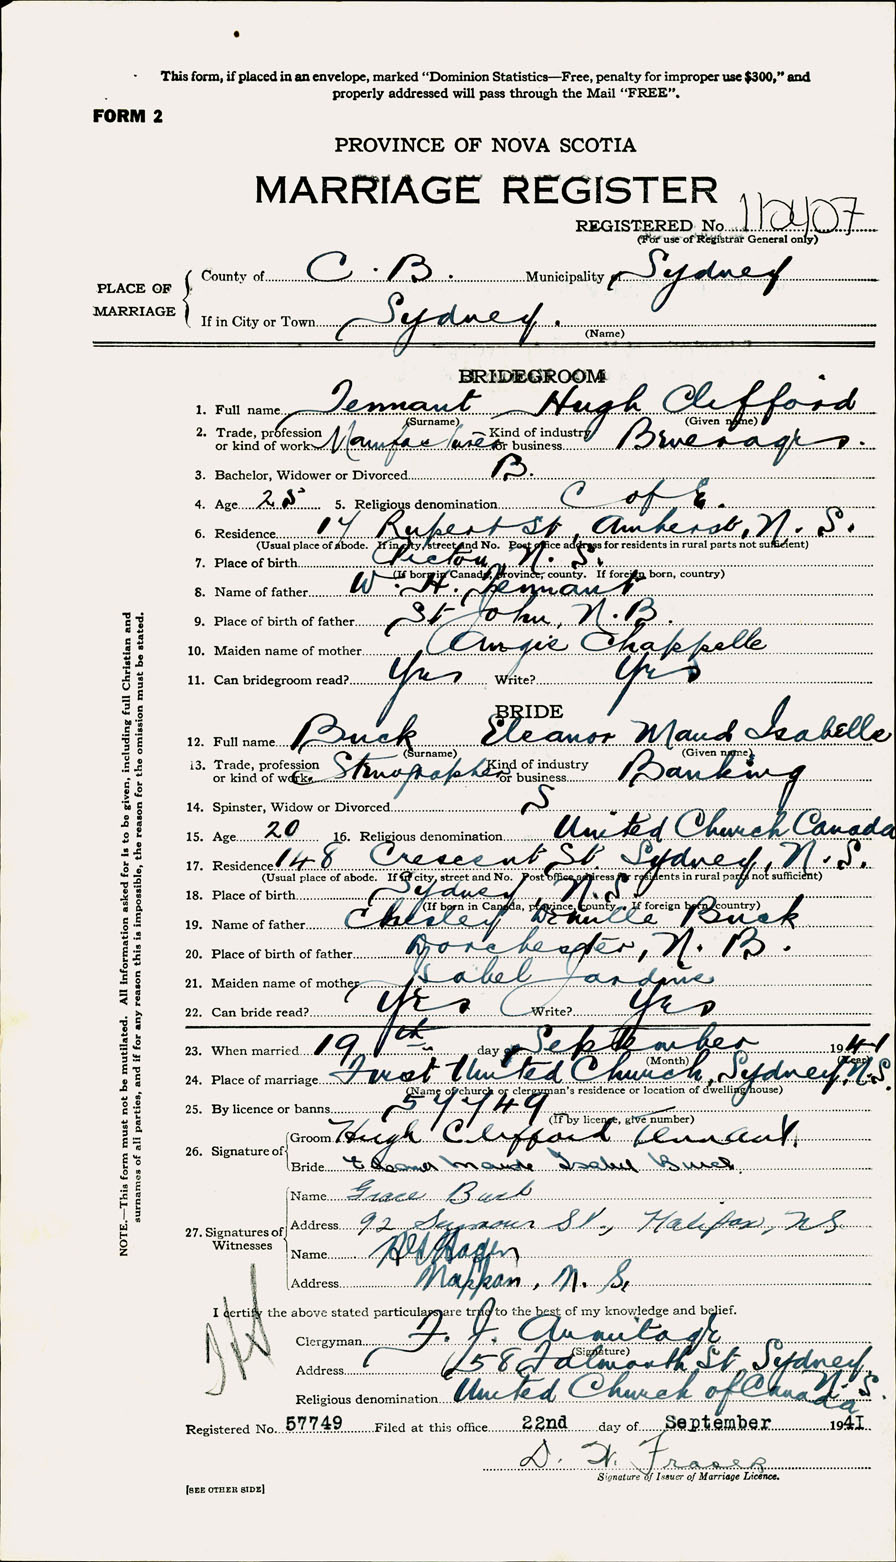 This form, if placed in an envelope, marked “Dominion Statistics—Free, penalty for improper use $300,” and
properly addressed will pass through the Mail “FREE”.
FORM 2
PROVINCE OF NOVA SCOTIA
MARRIAGE REGISTER
REGISTERED No.
(For use of Registrar General only)
PLACE OF MARRIAGE
County of C. B. Municipality of Sydney
If in City or Town Sydney.
(Name)
BRIDEGROOM
1. Full name Tennant Hugh Clifford
(Surname) (Given name)
2. Trade, profession or kind of work Manufacturer Kind of industry or business Beverages.
3. Bachelor, Widower or Divorced B.
4. Age 25 5. Religious denomination C of E.
6. Residence 17 Rupert St, Amherst, N. S.
(Usual place of abode. If in city, street and No. Post office address for residents in rural parts not sufficient)
7. Place of birth Pictou, N. S.
(If born in Canada, province, county. If foreign born, country)
8. Name of father W. H. Tennant
9. Place of birth of father St John, N.B.
10. Maiden name of mother Angie Chappelle
11. Can bridegroom read? Yes Write? Yes
BRIDE
12. Full name Buck Eleanor Maud Isabelle
(Surname) (Given name)
13. Trade, profession or kind of work Stenographer Kind of industry or business Banking
14. Spinster, Widow or Divorced S
15. Age 20 16. Religious denomination United Church Canada
17. Residence 148 Crescent St. Sydney, N. S.
(Usual place of abode. If in city, street and No. Post office address for residents in rural parts not sufficient)
18. Place of birth Sydney, N. S.
(If born in Canada, province, county. If foreign born, country)
19. Name of father Chesley Demille Buck
20. Place of birth of father Dorchester, N. B.
21. Maiden name of mother Isabel Jardine
22. Can bride read? Yes Write? Yes
23. When married 19th day of September 1941
(Month) (Year)
24. Place of marriage First United Church, Sydney, N.S.
(Name of church or clergyman's residence or location of dwelling house)
25. By licence or banns 57749
(If by license, give number)
26. Signature of
Groom Hugh Clifford Tennant.
Bride Eleanor Maude Isabel Buck.
27. Signatures of Witnesses
Name Grace Buck
Address 92 Seymour St., Halifax, N.S.
Name
Address Nappan, N. S.
I certify the above stated particulars are true to the best of my knowledge and belief.
Clergyman F. J. Armitage
(Signature)
Address 158 Falmouth St, Sydney N. S.
Religious denomination United Church of Canada
Registered No. 57749 Filed at this office 22nd day of September 1941
D. W. Fraser
Signature of Issuer of Marriage Licence.
[SEE OTHER SIDE]
NOTE.—This form must not be mutilated. All information asked for is to be given, including full Christian and
surnames of all parties, and if for any reason this is impossible, the reason for the omission must be stated.